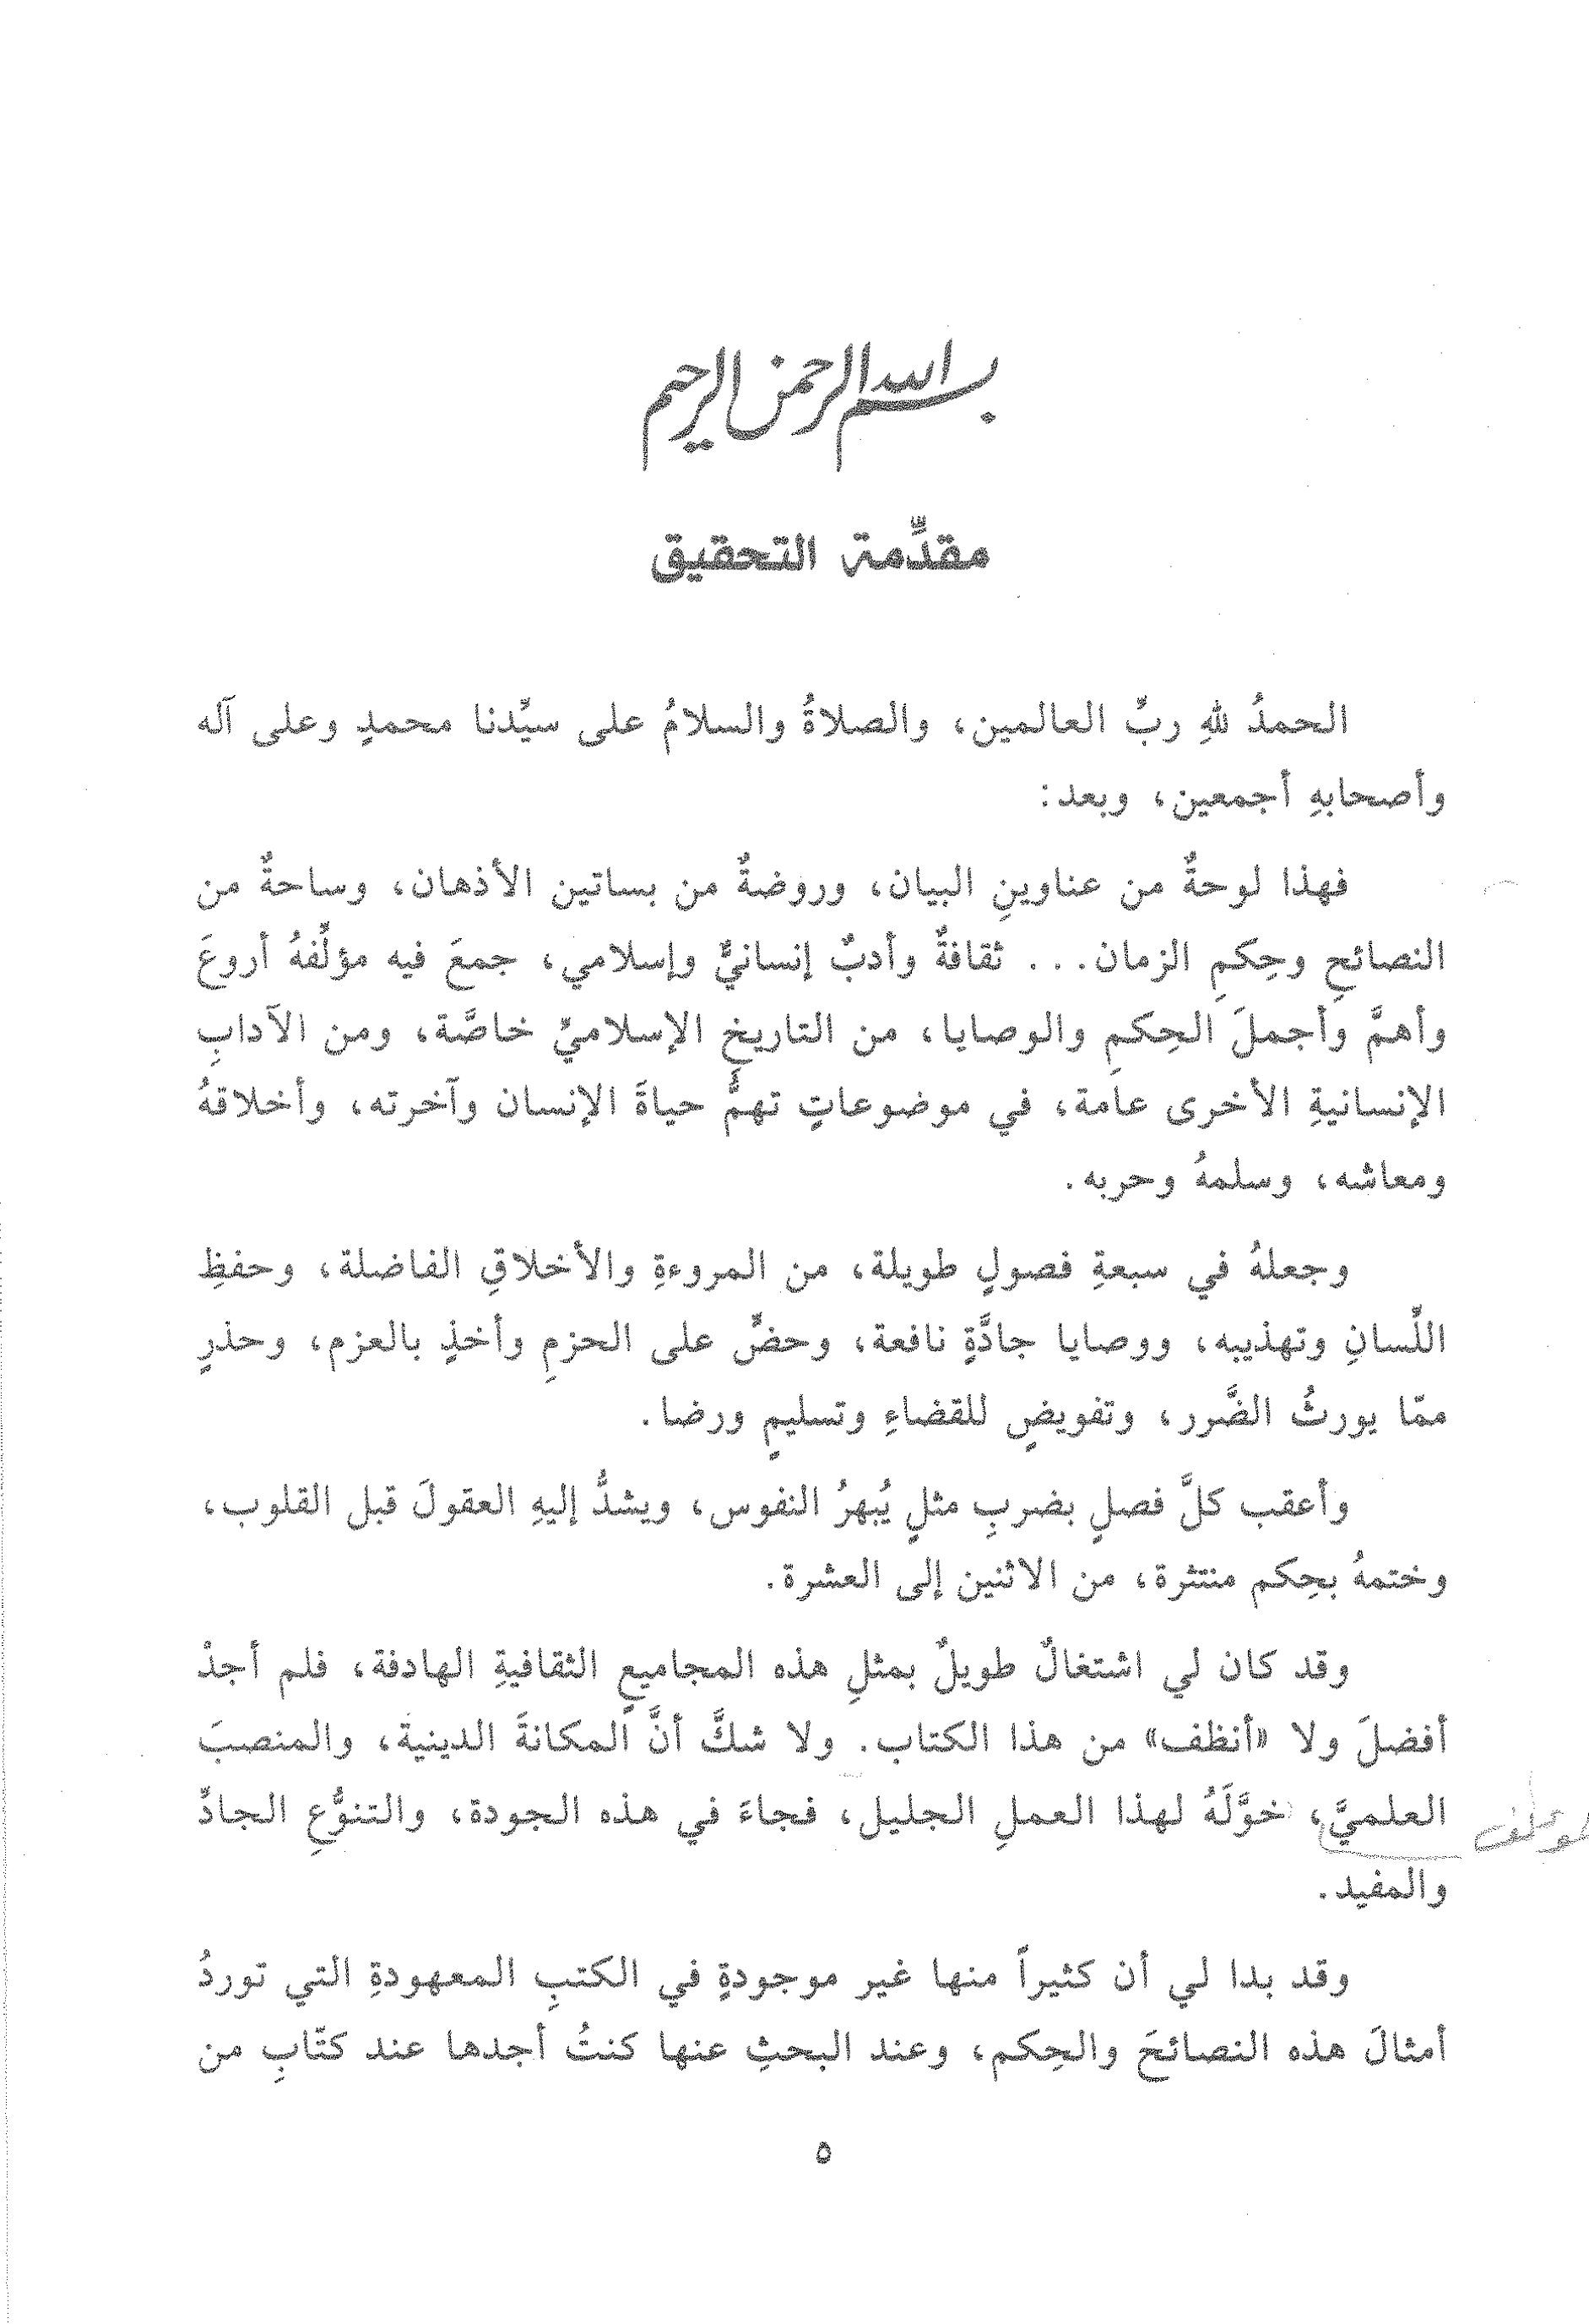 بسم الله الرحمن الرحيم
مقدِّمة التحقيق
الحمدُ للهِ ربِّ العالمين، والصلاةُ والسلامُ على سيِّدنا محمدٍ وعلى آله
وأصحابهِ أجمعين، وبعد:
فهذا لوحةٌ من عناوينِ البيان، وروضةٌ من بساتين الأذهان، وساحةٌ من
النصائحِ وحِكمِ الزمان... ثقافةٌ وأدبٌ إنسانيٌّ وإسلامي، جمعَ فيه مؤلِّفهُ أروعَ
وأهمَّ وأجملَ الحِكمِ والوصايا، من التاريخِ الإسلاميِّ خاصَّة، ومن الآدابِ
الإنسانيةِ الأخرى عامة، في موضوعاتٍ تهمُّ حياةَ الإنسان وآخرته، وأخلاقهُ
ومعاشه، وسلمهُ وحربه.
وجعلهُ في سبعةِ فصولٍ طويلة، من المروءةِ والأخلاقِ الفاضلة، وحفظِ
اللِّسانِ وتهذيبه، ووصايا جادَّةٍ نافعة، وحضٍّ على الحزمِ وأخذٍ بالعزم، وحذرٍ
ممّا يورثُ الضَّرر، وتفويضٍ للقضاءِ وتسليمٍ ورضا.
وأعقب كلَّ فصلٍ بضربِ مثلٍ يُبهرُ النفوس، ويشدُّ إليهِ العقولَ قبل القلوب،
وختمهُ بحِكم منتثرة، من الاثنين إلى العشرة.
وقد كان لي اشتغالٌ طويلٌ بمثلِ هذه المجاميعِ الثقافيةِ الهادفة، فلم أجدْ
أفضلَ ولا «أنظف» من هذا الكتاب. ولا شكَّ أنَّ المكانةَ الدينية، والمنصبَ
العلميَّ، خوَّلَهُ لهذا العملِ الجليل، فجاءَ في هذه الجودة، والتنوُّعِ الجادِّ
والمفيد.
وقد بدا لي أن كثيراً منها غير موجودةٍ في الكتبِ المعهودةِ التي توردُ
أمثالَ هذه النصائحَ والحِكم، وعند البحثِ عنها كنتُ أجدها عند كتّابِ من
٥